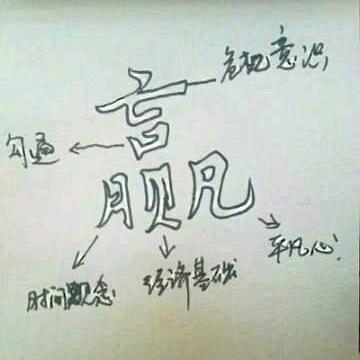 危机意识
赢
勾通
平凡心!
时间观念
经济基础